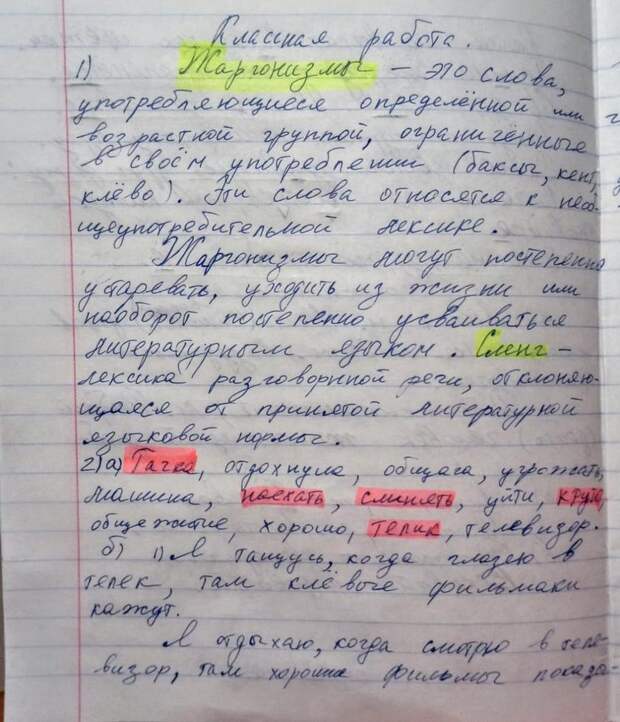 Классная работа.
1) Жаргонизмы – это слова,
употребляющиеся определённой или
возрастной группой, ограниченные
в своём употреблении (баксы, кент,
клёво). Эти слова относятся к необ-
щеупотребительной лексике.
Жаргонизмы могут постепенно
устаревать, уходить из жизни или
наоборот постепенно усваиваться
литературным языком. Сленг –
лексика разговорнной речи, отклоняю-
щаяся от принятой литературной
языковой нормы.
2) а) Тачка, отдохнула, общага, угрожать,
машина, наехать, слинять, уйти, круто,
общежитие, хорошо, телик, телевизор.
б) 1) Я тащусь, когда глазею в
телек, там клёвые фильмаки
кажут.
Я отдыхаю, когда смотрю в теле-
визор, там хорошие фильмы показы-